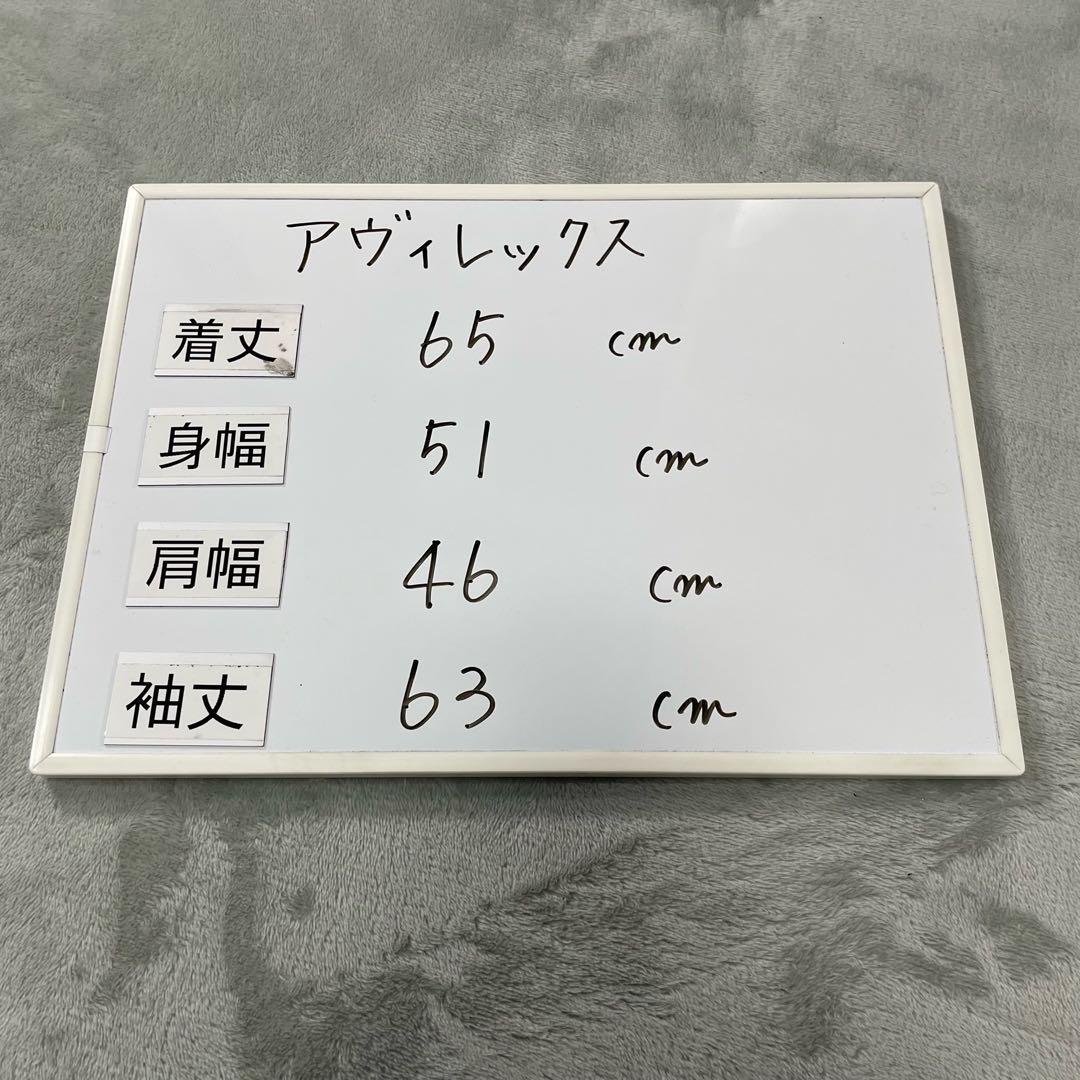 アヴィレックス
着丈 65 cm
身幅 51 cm
肩幅 46 cm
袖丈 63 cm